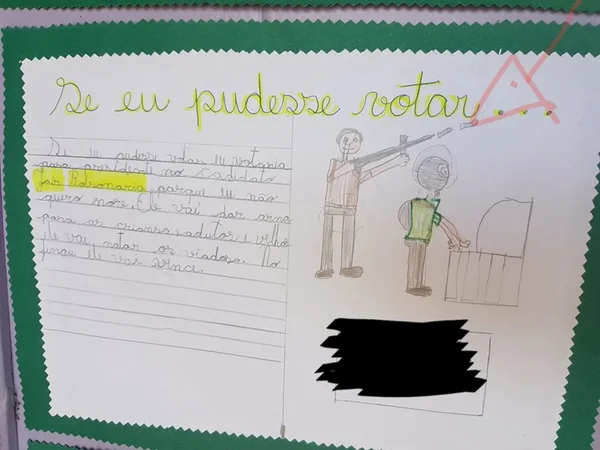 Se eu pudesse votar...
Se eu pudesse votar eu votaria
para presidente no Cadidato
Jair Bolsonario porque eu não
quero more. Ele vai dar arma
para as criansa, adutos, e velho
Ele vai matar os viadose. No
finau ele vai vence.